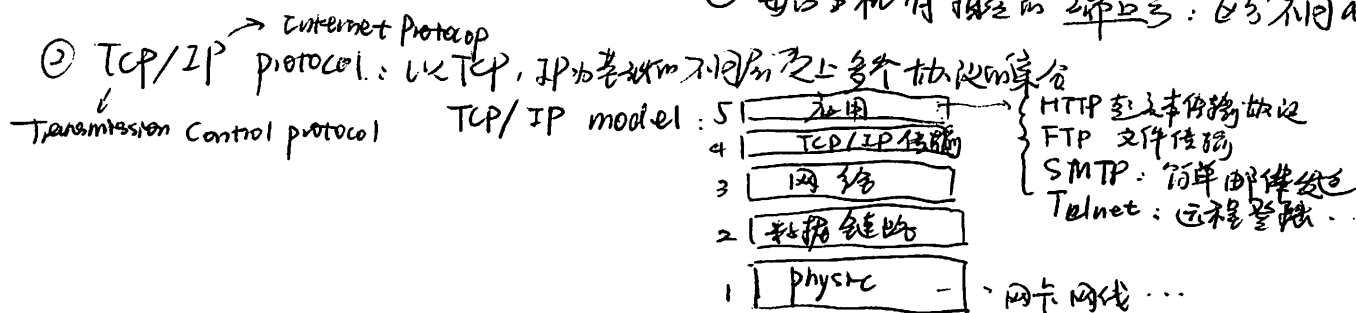 每台主机有指定的端口号：区分不同
Internet Protocop
② TCP/IP protocol：以TCP，IP为基础的不同层次上多个协议的集合
Transmission Control protocol
TCP/IP model：5 应用 HTTP 超文本传输协议
4 TCP/IP传输 FTP 文件传输
3 网络 SMTP：简单邮件发送
Telnet：远程登陆…
2 数据链路
1 physic 网卡网线…